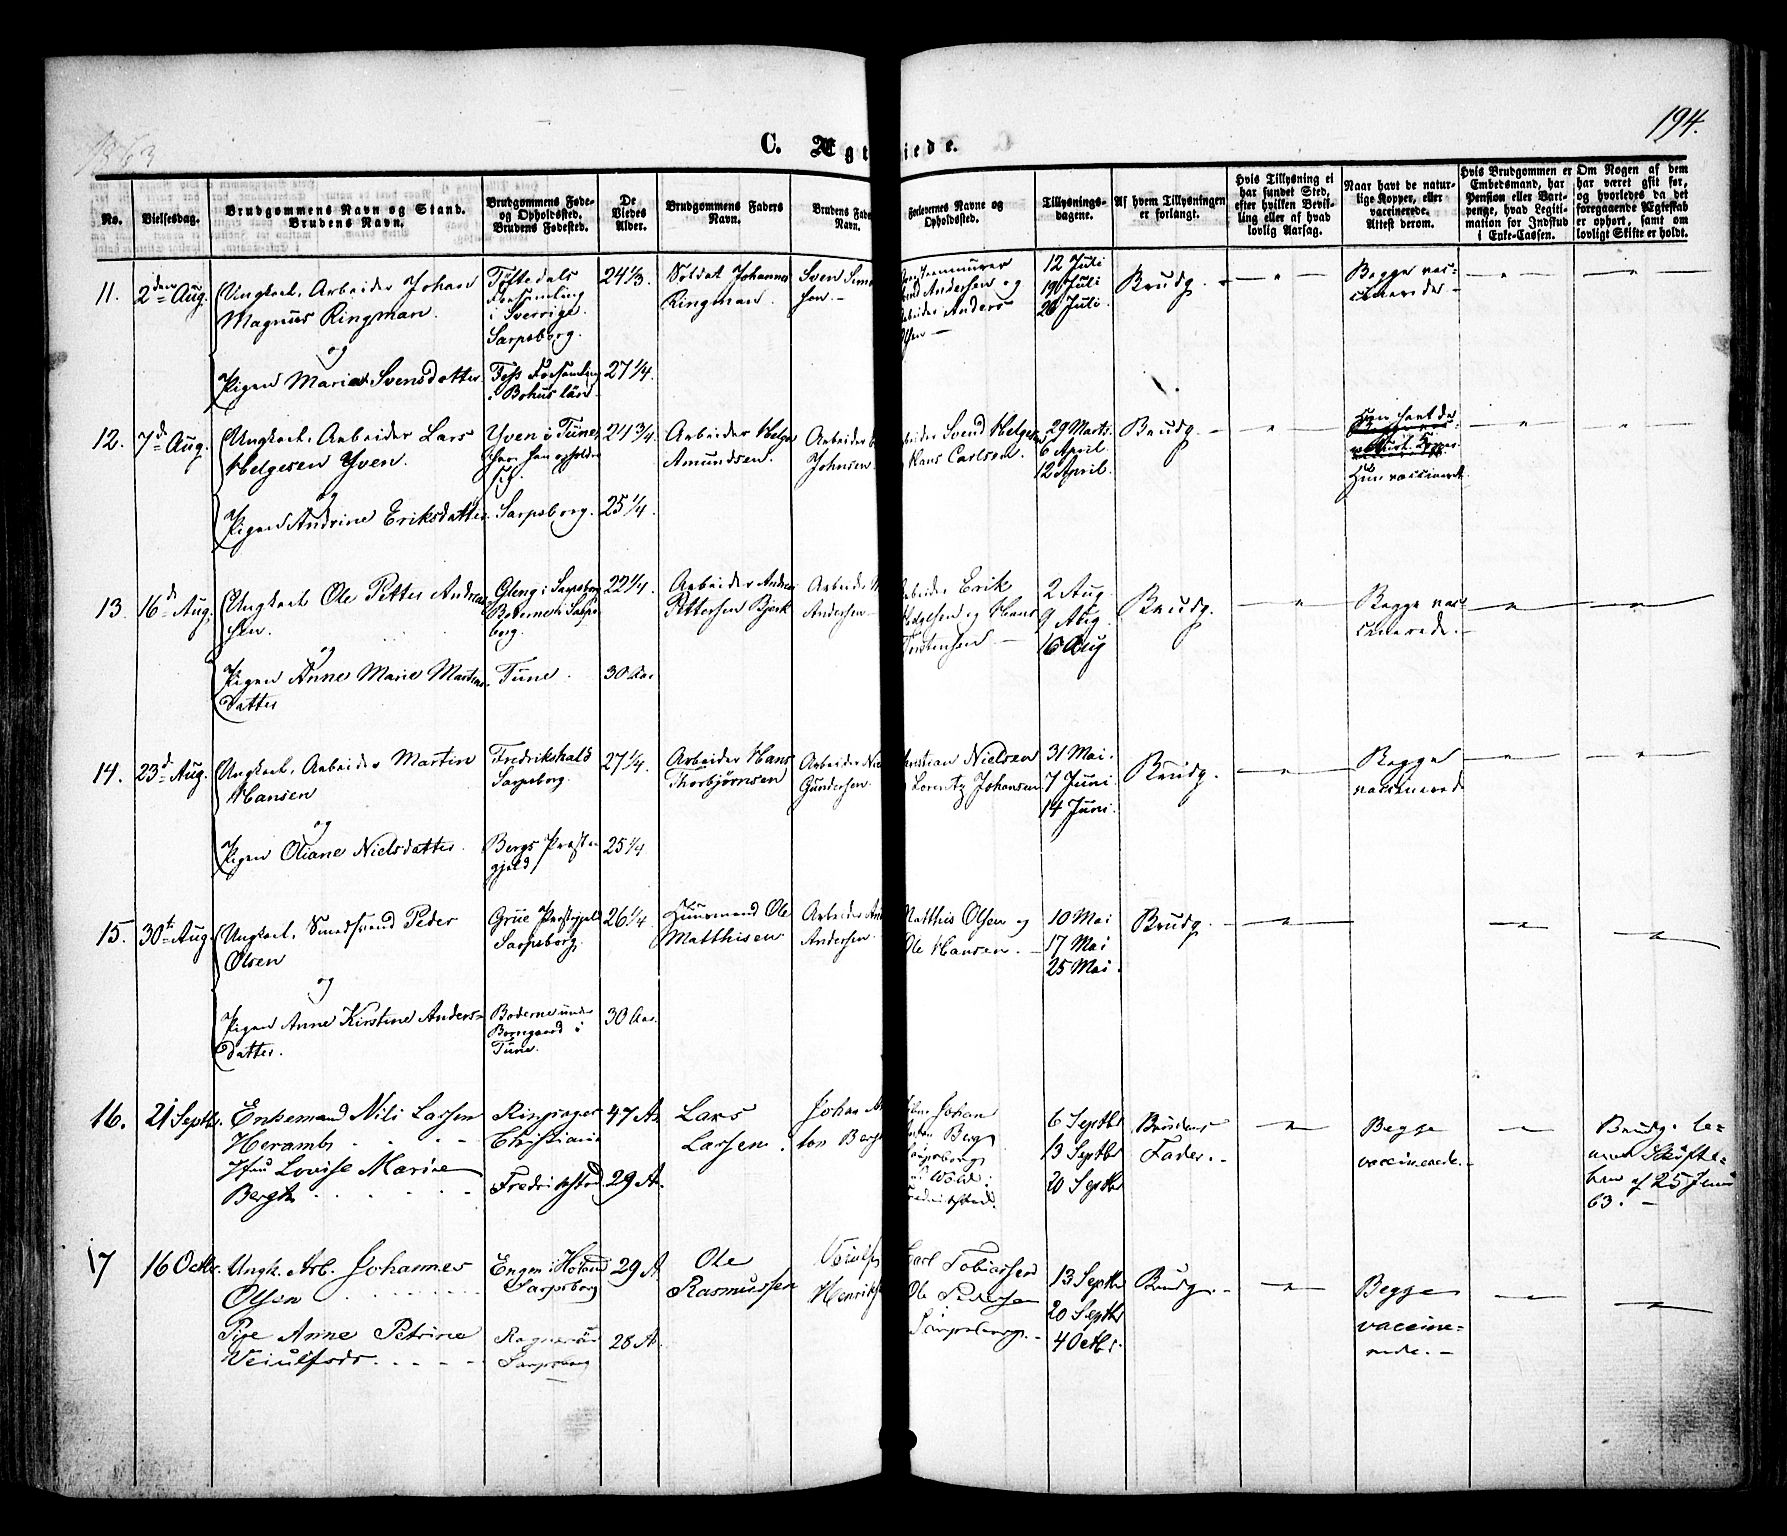 1863
194.
C. Ægt
iede.
No.
Vielsesdag.
Brudgommens Navn og Stand.
Brudens Navn.
Brudgommens Føde-
og Opholdssted.
Brudens Fødested.
De
Viedes
Alder.
Brudgommens Faders
Navn.
Brudens Fad
Navn.
Forlovernes Navne og
Opholdssted.
Tillysnings-
dagene.
Af hvem Tillysningen
er forlangt.
Hvis Tillysning ei
har fundet Sted,
efter hvilken Bevil-
ling eller af hvad
lovlig Aarsag.
Naar havt de natur-
lige Kopper, eller
vaccinerede.
Attest derom.
Hvis Brudgommen er
Embedsmand, har
Pension eller Vart-
penge, hvad Legiti-
mation for Indskud
i Enke-Cassen.
Om Nogen af dem
har været gift før,
og hvorledes da det
foregaaende Ægteskab
er ophørt, samt om
lovligt Skifte er holdt.
11.
2den Aug.
Ungkarl, Arbeider Johan
Magnus Ringman.
og
Pigen Maria Svensdatter
Töftedals
Forsamling
i Sverrige.
Sarpsborg.
Foss Forsamling
i Bohus län
24 1/3
27 1/4.
Soldat Johannes
Ringman.
Sven Simo
sen.
Andersen og
Anders
12 Juli
19 Juli
26 Juli.
Brudg.
Begge vac-
cinerede.
12.
7d Aug.
Ungkarl, Arbeider Lars
Helgesen Yven.
og
Pigen Andrine Eriksdatter.
Yven i Tune,
hvor han opholder
sig.
Sarpsborg.
24 3/4
25 1/4.
Arbeider Helge
Amundsen.
Arbeider
Johnsen
Svend Helgesen
Hans Carlsen.
29 Marts.
6 April
12 April.
Brudg.
Hun vaccineret
13.
16d Aug.
Ungkarl Ole Petter Andrea-
sen.
og
Pigen Anne Marie Martins-
datter
Gleng i Sarpsborg
Sarps
borg.
Tune.
22 1/4
30 Aar
Arbeider Andreas
Pettersen Bjerk
Arbeider
Andersen
Arbeider Erik
Helgesen og Hans
Torstensen
2 Aug.
9 Aug.
16 Aug
Brudg.
Begge vac-
cinerede.
14.
23d Aug.
Ungkarl, Arbeider Martin
Hansen
og
Pigen Oliane Nielsdatter.
Fredrikshald
Sarpsborg.
Bergs Præste-
gjeld
27 1/4.
25 1/4
Arbeider Hans
Thorbjørnsen
Arbeider Nie
Gundersen.
Christian Nielsen
Lorentz Johansen
31 Mai.
7 Juni.
14 Juni.
Brudg.
Begge
vaccinerede
15.
30te Aug.
Ungkarl, Smedsvend Peder
Olsen
og
Pigen Anne Kirstine Anders-
datter.
Grue Præstegjeld
Sarpsborg.
Boderne under
Borregaard i
Tune.
26 1/4
30 Aar.
Huusmand Ole
Matthisen
Arbeider And
Andersen.
Matthis Olsen og
Ole Hansen.
10 Mai
17 Mai
25 Mai.
Brudg.
16.
21 Septbr.
Enkemand Nils Larsen
Heramb
Jfru Lovise Marine
Bergh
Ringsager
Christiania
Fredrikstad
47 A.
29 A.
Lars
Larsen.
Johan An
ton Bergh
Johan
Anton Berg
Sarpsborg
Wold
Fredrikstad.
6 Septbr
13 Septbr
20 Septbr
Brudens
Fader.
Begge
vaccinerede.
Brudg. le-
veret Skifte-
brev af 25 Juni
63.
17
16 Octbr.
Ungk. Arb. Johannes
Olsen
Pige Anne Petrine
Veiulfsdr.
Engen i Høland
Sarpsborg
Sarpsborg
29 A.
28 A.
Ole
Rasmussen
Veiulf
Henriks
Carl Tobiassen
Ole Pedersen
Sarpsborg.
13 Septbr
20 Septbr
4 Octbr.
Brudg.
Begge
vaccine-
rede.